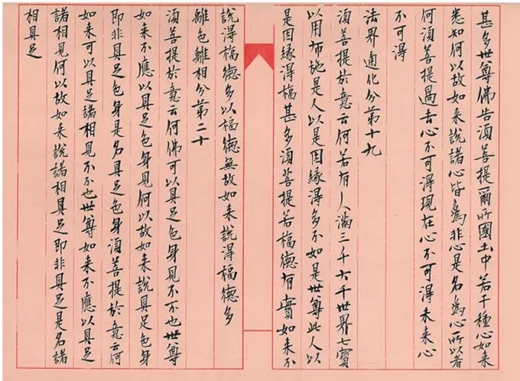 甚多世尊佛告須菩提爾所國土中若干種心如来
悉知何以故如来說諸心皆為非心是名為心所以者
何須菩提過去心不可得現在心不可得未来心
不可得
法界通化分第十九
須菩提於意云何若有人滿三千大千世界七寶
以用布施是人以是因緣得多不如是世尊此人以
是因緣得福甚多須菩提若福德有實如来不
說得福德多以福德無故如来說得福德多
離色離相分第二十
須菩提於意云何佛可以具足色身見不不也世尊
如来不應以具足色身見何以故如来說具足色身
即非具足色身是名具足色身須菩提於意云何
如来可以具足諸相見不不也世尊如来不應以具足
諸相見何以故如来說諸相具足即非具足是名諸
相具足